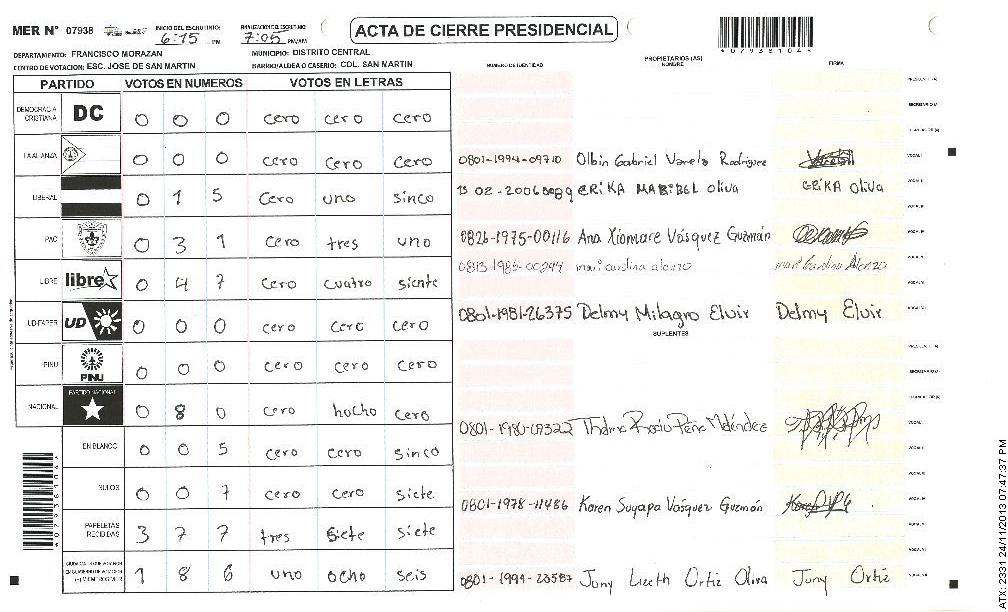 MER N° 07938 INICIO DEL ESCRUTINIO: 6:15 PM FINALIZACION DEL ESCRUTINIO: 7:05 PM/AM ACTA DE CIERRE PRESIDENCIAL
DEPARTAMENTO: FRANCISCO MORAZAN MUNICIPIO: DISTRITO CENTRAL
CENTRO DE VOTACION: ESC. JOSE DE SAN MARTIN BARRIO/ALDEA O CASERIO: COL. SAN MARTIN
NUMERO DE IDENTIDAD PROPIETARIOS (AS) NOMBRE FIRMA
PARTIDO VOTOS EN NUMEROS VOTOS EN LETRAS
DEMOCRACIA CRISTIANA DC 0 0 0 cero cero cero
LA ALIANZA 0 0 0 cero cero cero
0801-1994-09710 Olbin Gabriel Varela Rodriguez
LIBERAL 0 1 5 cero uno sinco
ERIKA MARIBEL Oliva ERIKA Oliva
PAC 0 3 1 cero tres uno
0826-1975-00116 Ana Xiomare Vásquez Guzmán
LIBRE libre 0 4 7 cero cuatro siente
0813-1986-00244 mari cardina alonzo
UD-FAPER UD 0 0 0 cero cero cero
0801-1981-26375 Delmy Milagro Elvir Delmy Elvir
SUPLENTES
PINU PINU 0 0 0 cero cero cero
NACIONAL PARTIDO NACIONAL 0 8 0 cero hocho cero
0801-1980-09322
EN BLANCO 0 0 5 cero cero sinco
NULOS 0 0 7 cero cero siete
0801-1978-11486 Karen Suyapa Vasquez Guzmán
PAPELETAS RECIBIDAS 3 7 7 tres siete siete
1 8 6 uno ocho seis
0801-1994-23587 Juny Lizeth Ortiz Oliva Juny Ortiz
ATX 2331 24/11/2013 07:47:37 PM